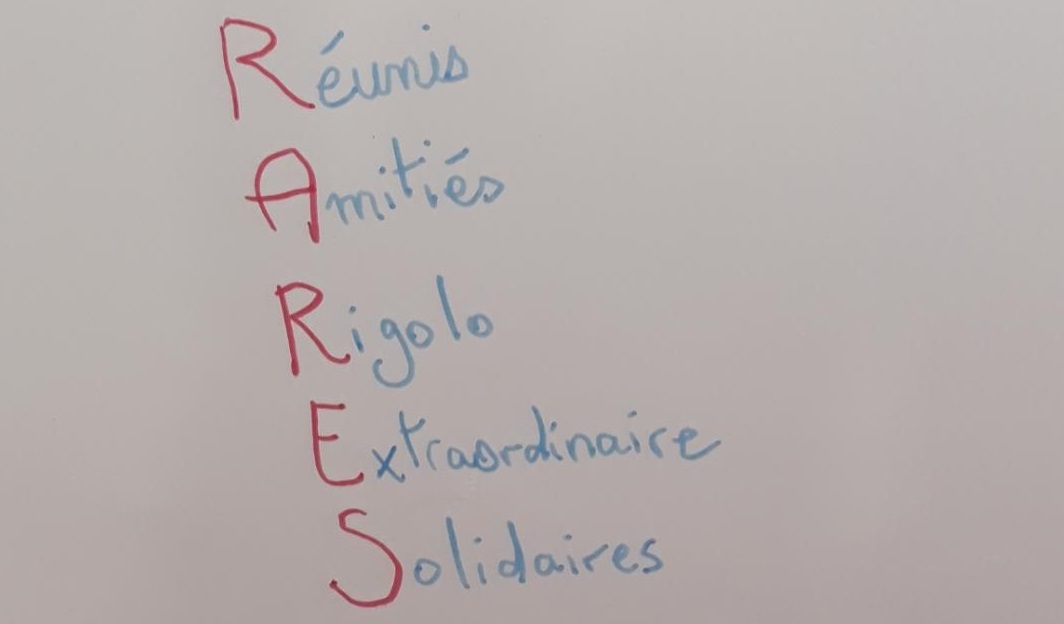 Réunis
Amitiés
Rigolo
Extraordinaire
Solidaires